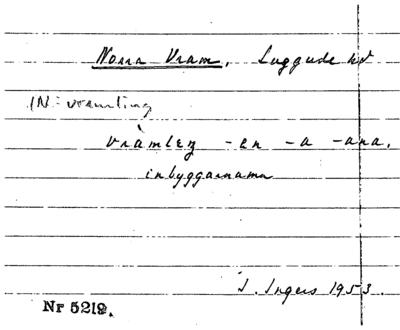 Norra Vram, Luggude hd
IN: vramling
vràmleŋ -en -a -ana.
inbyggarnamn
I. Ingers 1953.
Nr 5219.